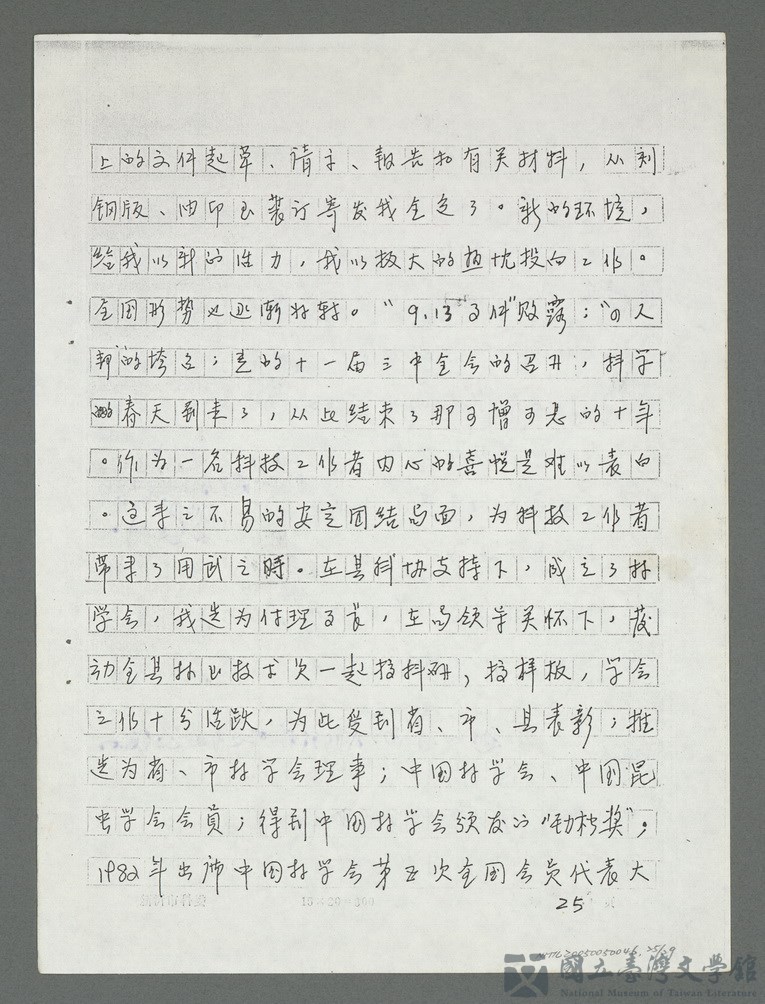 上的文件起草、请示、报告和有关材料，从刻
钢版、油印至装订寄发我全包了。新的环境，
给我以新的活力，我以极大的热忱投向工作。
全国形势也逐渐好转。“9.13事件”败露；“四人
帮”的垮台；党的十一届三中全会的召开，科学
的春天到来了，从此结束了那可憎可恶的十年
。作为一名科技工作者内心的喜悦是难以表白
。这来之不易的安定团结局面，为科技工作者
带来了用武之時。在县科协支持下，成立了林
学会，我选为付理事长，在局领导关怀下，发
动全县林业技术人员一起搞科研，搞样板，学会
工作十分活跃，为此受到省、市、县表彰；推
选为省、市林学会理事；中国林学会、中国昆
虫学会会員；得到中国林学会颁发的“劲松奖”；
1982年出席中国林学会第五次全国会员代表大
25
NMTL20050050046, 25/29
國立臺灣文學館
National Museum of Taiwan Literature